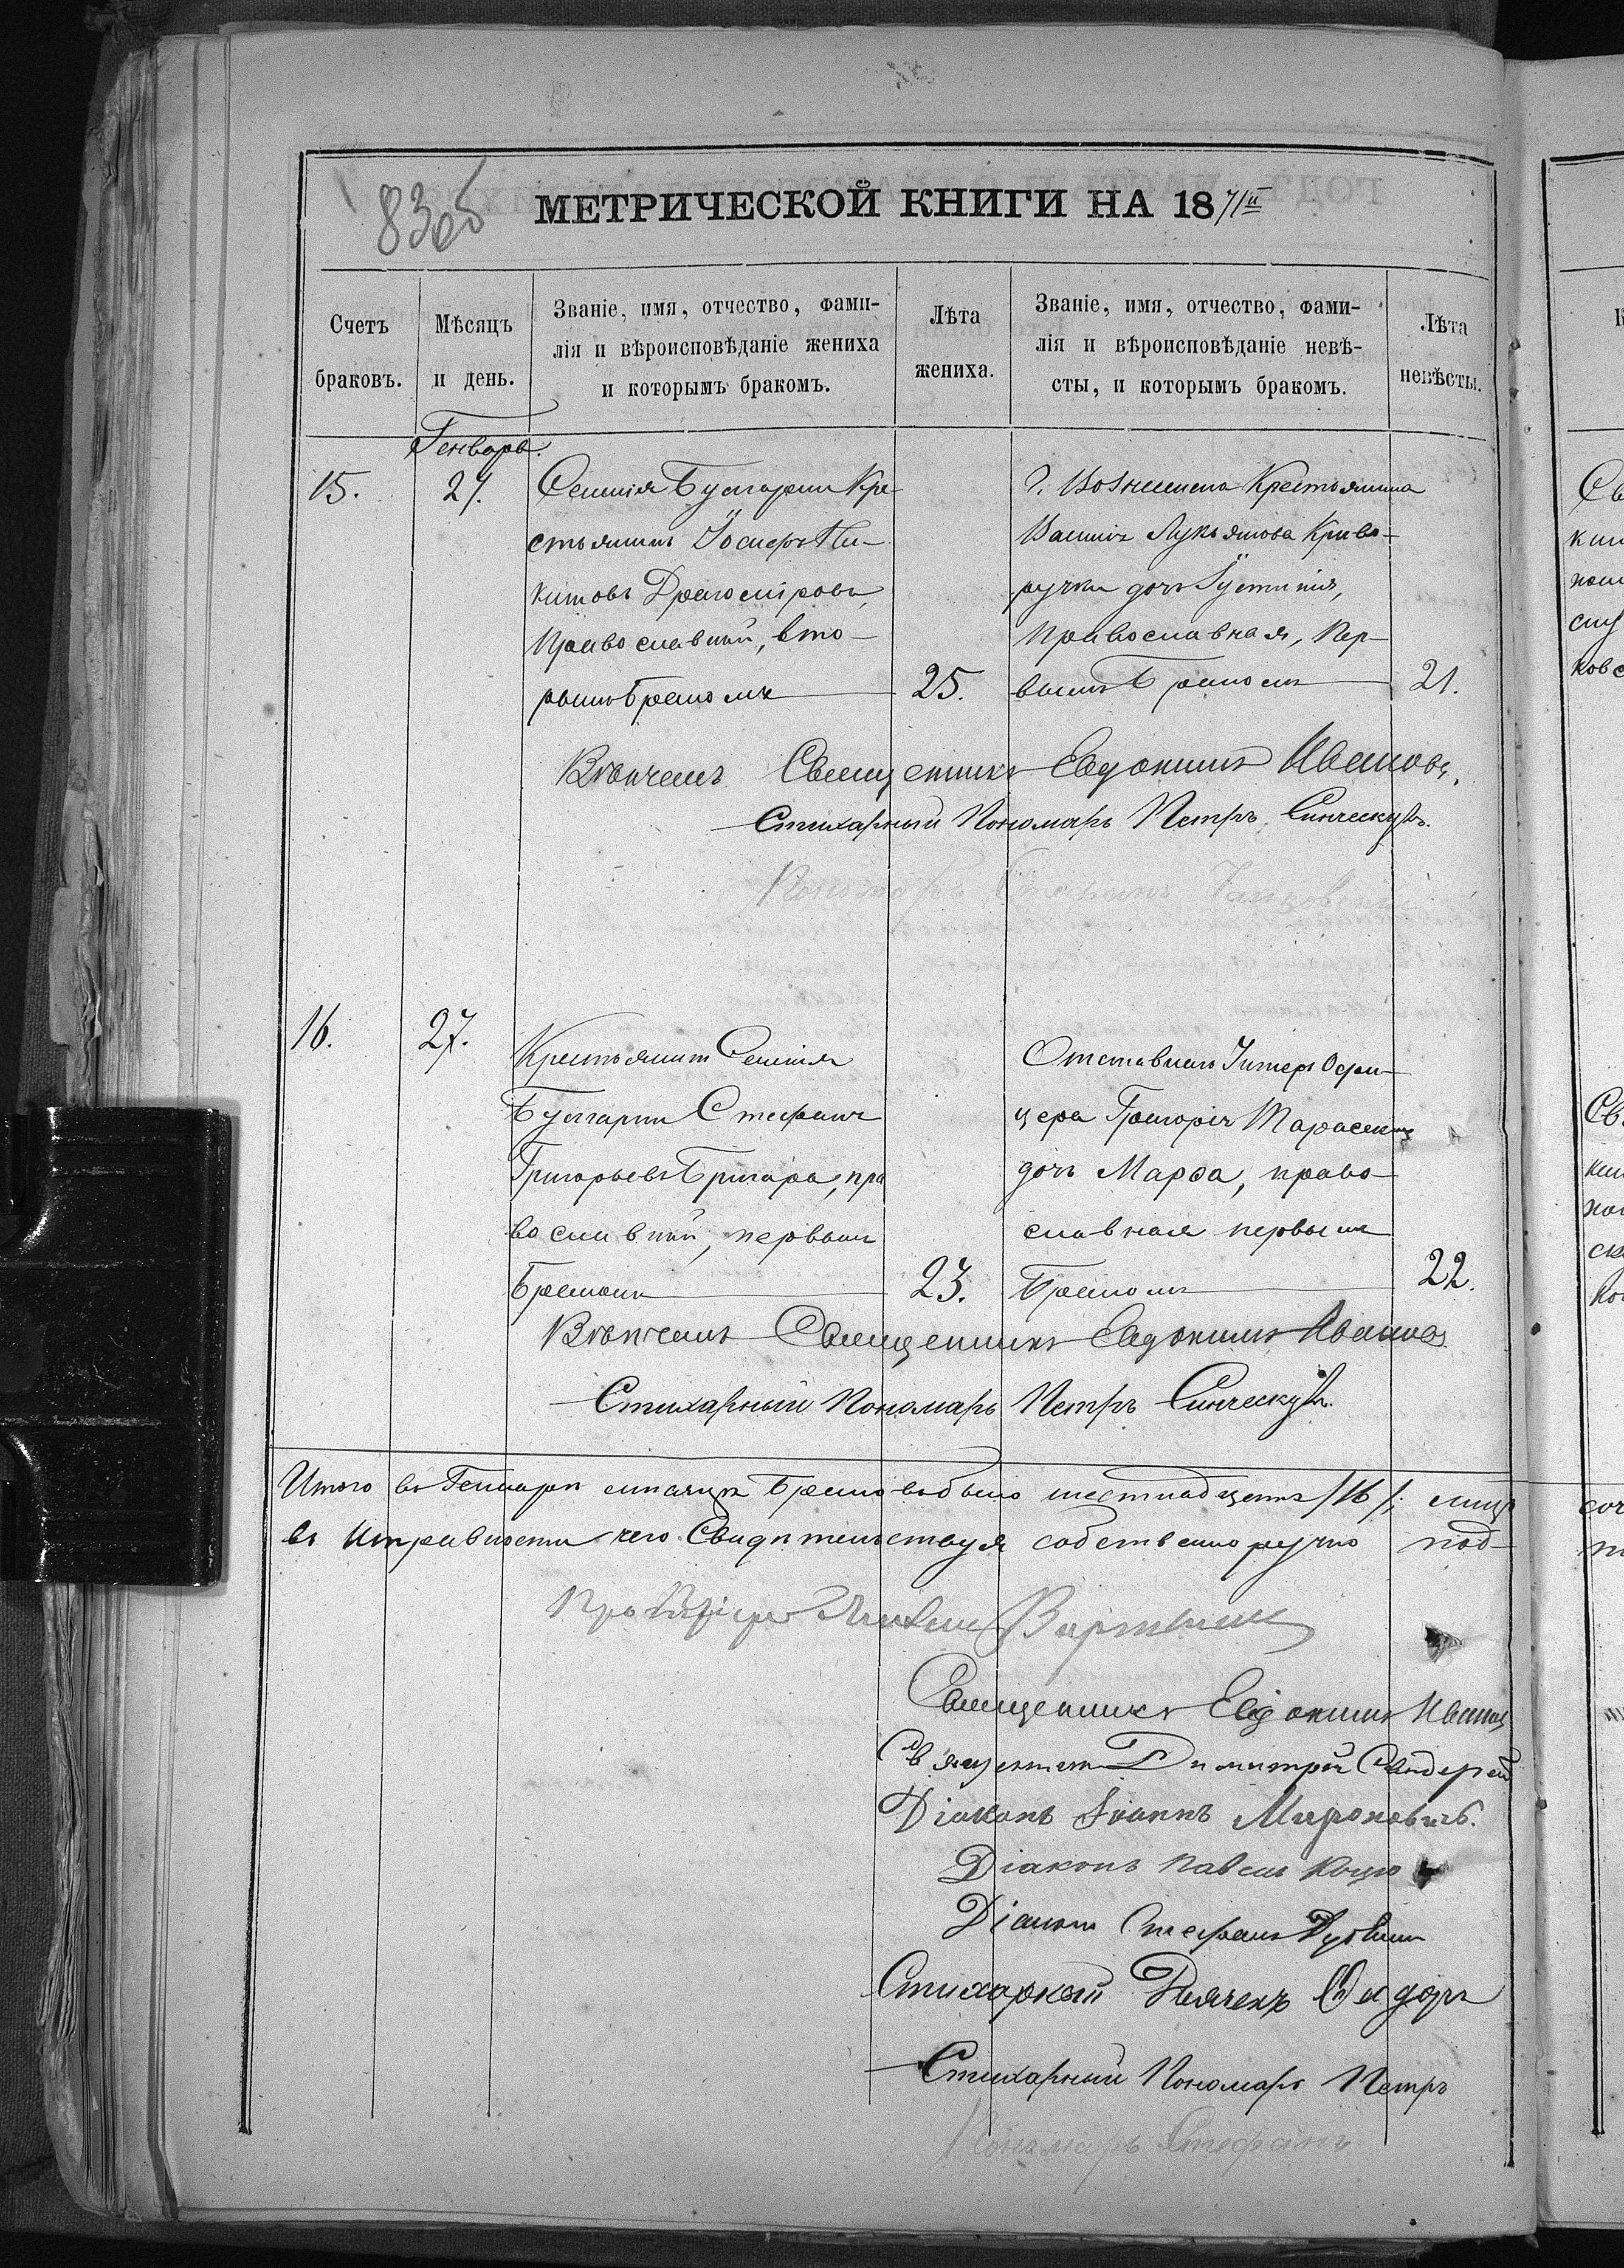 83об
МЕТРИЧЕСКОЙ КНИГИ НА 1871й
Счетъ браковъ.
Мѣсяцъ и день.
Званіе, имя, отчество, фами-
лія и вѣроисповѣданіе жениха
и которымъ бракомъ.
Лѣта жениха.
Званіе, имя, отчество, фами-
лія и вѣроисповѣданіе невѣ-
сты, и которымъ бракомъ.
Лѣта невѣсты.
Генварь.
15.
27.
Селенія Булгарии Кре-
стьянинъ Ни-
китовъ Драгомировъ,
Православный, вто-
рымъ бракомъ
25.
Г. Вознесенска Крестьянина
Василія Лукьянова Криво-
ручки дочь Іустинія,
православная, пер-
вымъ бракомъ
21.
Вѣнчалъ Священникъ Евдокимъ Ивановъ.
Стихарный Пономарь Петръ
Пономарь Стефанъ
16.
27.
Крестьянинъ Селенія
Булгарии Стефанъ
Григорьевъ Бригара, пра
вославный, первымъ
бракомъ
23.
Отставнаго Унтеръ Офи-
цера Григорія
дочь Марѳа, право-
славная первымъ
бракомъ
22.
Вѣнчалъ Священникъ Евдокимъ Ивановъ
Стихарный Пономарь Петръ
Итого въ Генварѣ мѣсяцѣ браковъ было шестнадцать /16/;
въ исправности чего свидѣтельствуя собственноручно под-
Протоіерей
Священникъ Евдокимъ Ивановъ
Священникъ Димитрій
Діаконъ Іоаннъ Мироновичъ.
Діаконъ Павелъ
Діаконъ Стефанъ
Стихарный Дьячекъ Ѳедоръ
Стихарный Пономарь Петръ
Пономарь Стефанъ